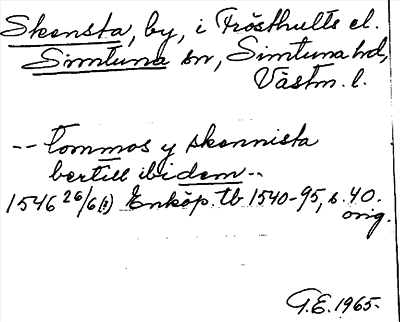 Skensta, by, i Frösthults el.
Simtuna sn, Simtuna hd,
Västm. l.
-- tommos y skennista
bertill ibidem --
1546 26/6(!) Enköp. tb 1540-95, s. 40.
orig.
G.E. 1965.